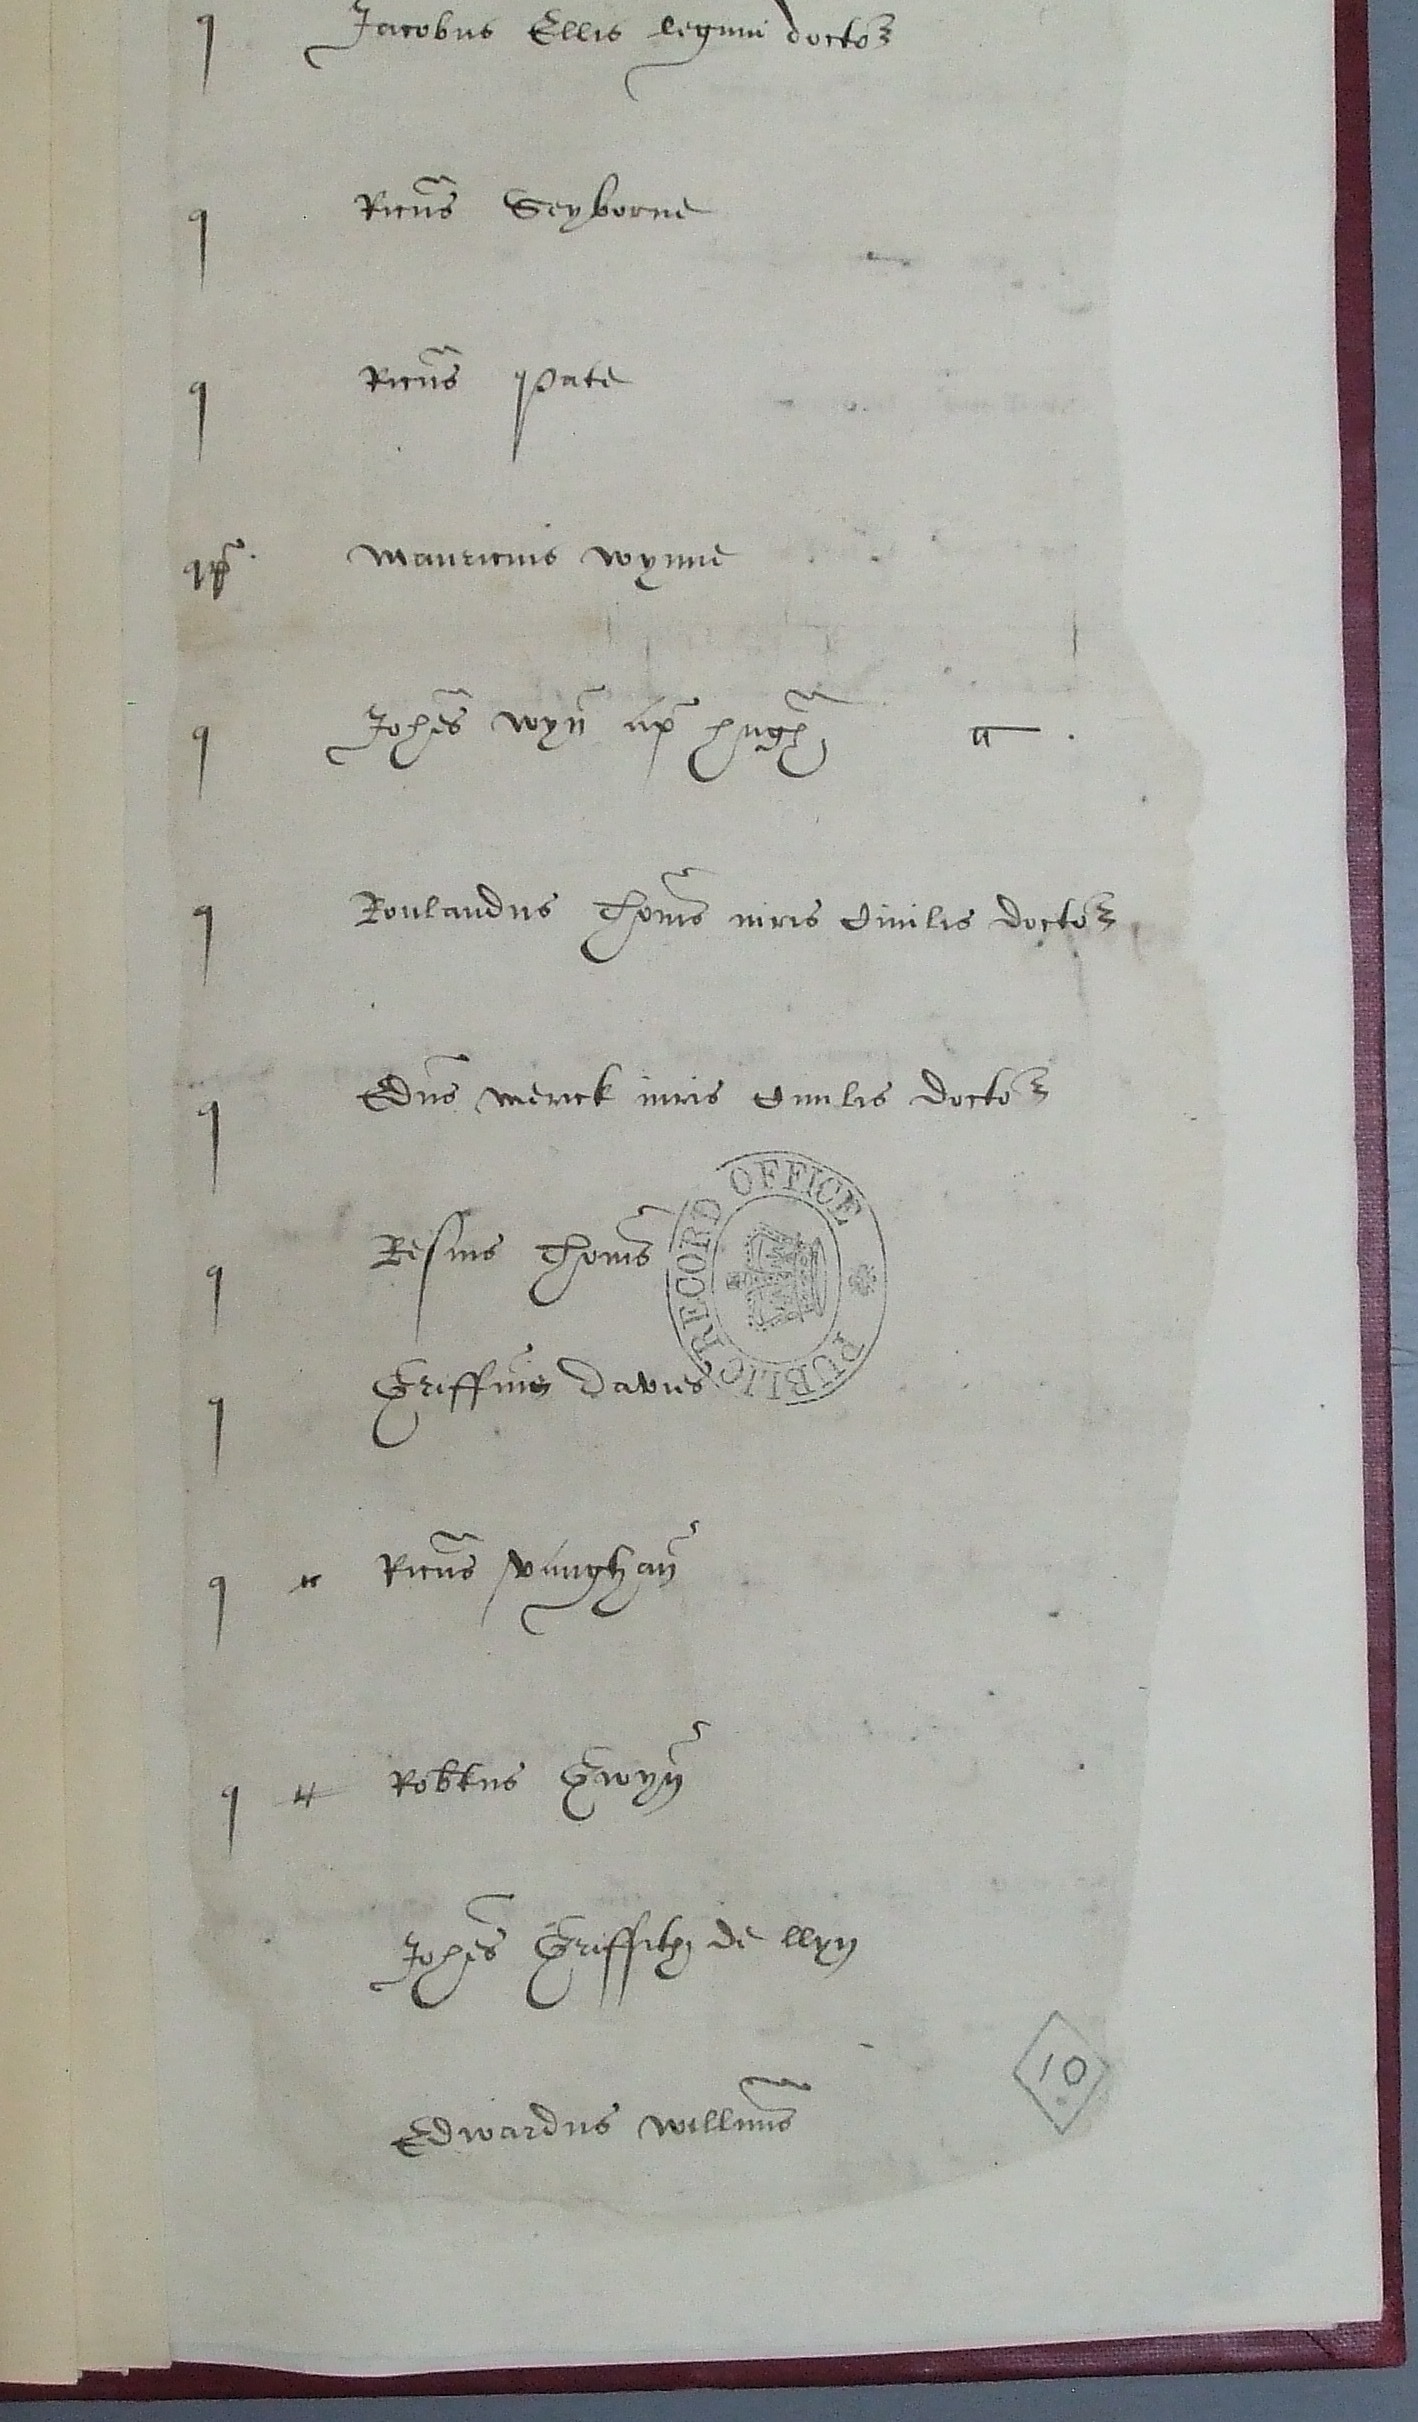 q Jacobus Ellis legum doctor
q Ricus Seyborne
q Ricus Pate
qr Mauricius wynne
q Johes wyn ap hugh a
q Roulandus Thoms iuris Civilis doctor
q Edus merick iuris Civilis doctor
q Resius Thoms
q Griffinus Davies
q Ricus vaughan
q Robtus Gwyn
Johes Griffith de llyn
Edwardus willms
PUBLIC RECORD OFFICE
10